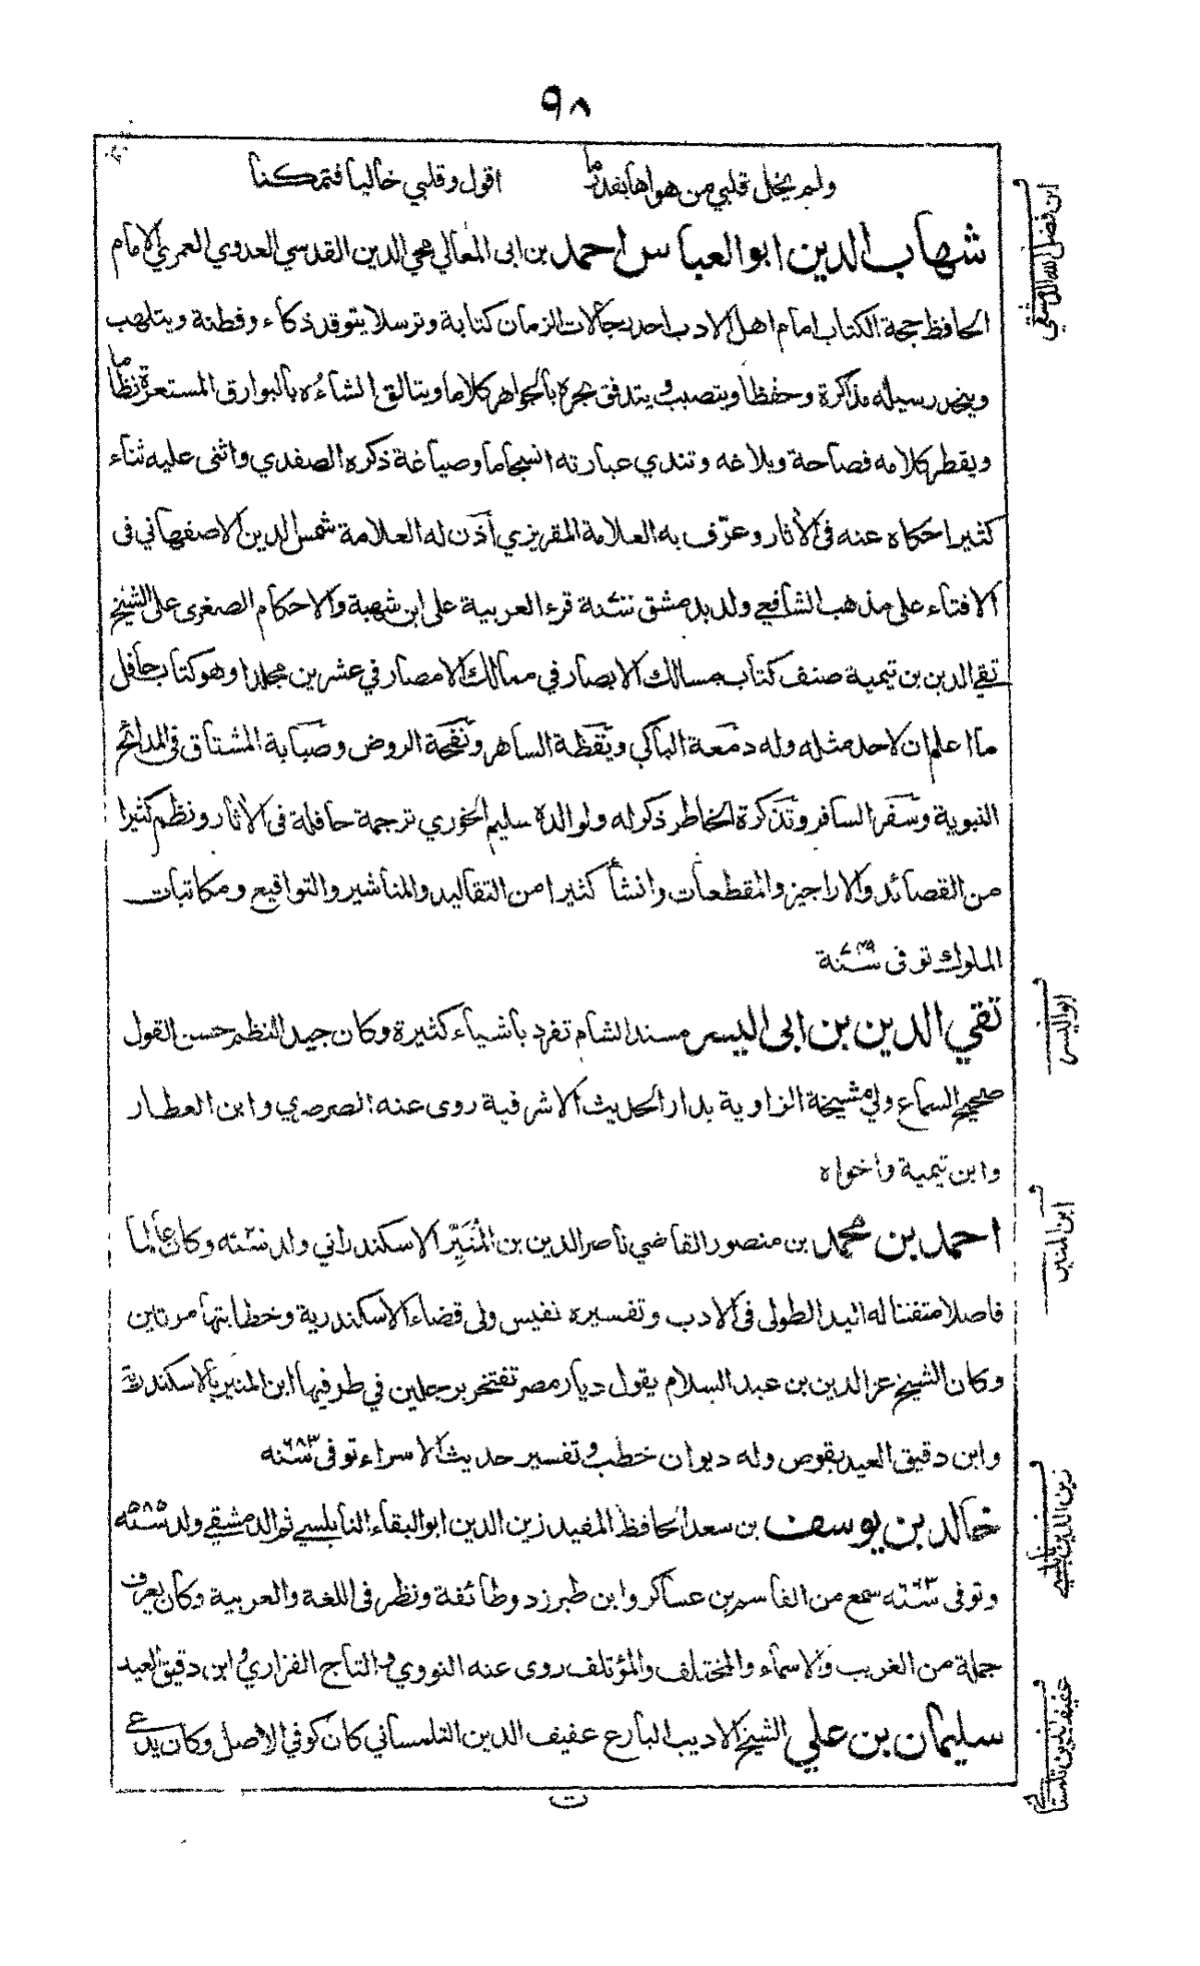 ٩٨
ولم يخل قلبي من هواها بقدر ما اقول وقلبي خاليا فتمكنا
شهاب الدين ابو العباس احمد بن ابى المعالي محي الدين القدسي العدوي العمري الامام
الحافظ حجة الكتاب امام اهل الادب احد رجالات الزمان كتابة وترسلا يتوقد ذكاء وفطنة ويتلهب
وينحدر سيله مذاكرة وحفظا ويتصبب ويتدفق بحره بالجواهر كلاما ويتالق انشاءه بالبوارق المستعرة نظما
ويقطر كلامه فصاحة وبلاغه وتندي عبارته انسجاما وصياغة ذكره الصفدي واثنى عليه ثناء
كثيرا حكاه عنه فى الأثار وعرّف به العلامة المقريزي أذن له العلامة شمس الدين الاصفهاني فى
الافتاء على مذهب الشافعي ولد بدمشق سنة قرء العربية على ابن شهبة والاحكام الصغرى على الشيخ
تقي الدين بن تيمية صنف كتاب مسالك الابصار في ممالك الامصار في عشرين مجلدا وهو كتاب حافل
ما اعلم ان لاحد مثله وله دمعة الباكي ويقظة الساهر ونفحة الروض وصبابة المشتاق فى المدائح
النبوية وسفر السافر وتذكرة الخاطر ذكر له ولوالده سليم الخوري ترجمة حافلة فى الأثار ونظم كثيرا
من القصائد والاراجيز والمقطعات وانشأ كثيرا من التقاليد والمناشير والتواقيع ومكاتبات
الملوك توفى سنة ٧٤٩
تقي الدين بن ابى اليسر مسند الشام تفرد باشياء كثيرة وكان جيد النظم حسن القول
صحيح السماع ولي مشيخة الزاوية بدار الحديث الاشرفية روى عنه الصرصري وابن العطار
وابن تيمية واخواه
احمد بن محمد بن منصور القاضي ناصر الدين بن المُنَيِّر الاسكندراني ولد سنة وكان عالما
فاضلا متفننا له اليد الطولى فى الادب وتفسيره نفيس ولى قضاء الاسكندرية وخطابتها مرتاين
وكان الشيخ عز الدين بن عبد السلام يقول ديار مصر تفتخر برجلين في طرفيها ابن المنير بالاسكندرية
وابن دقيق العيد بقوص وله ديوان خطب وتفسير حديث الاسراء توفى سنة ٦٨٣
خالد بن يوسف بن سعد الحافظ المفيد زين الدين ابو البقاء النابلسي ثم الدمشقي ولد سنة ٥٨٥
وتوفى سنة ٦٦٣ سمع من القاسم بن عساكر وابن طبرزد وطائفة ونظر فى اللغة والعربية وكان يعرف
جملة من الغريب والاسماء والمختلف والمؤتلف روى عنه النووي والتاج الفزاري وابن دقيق العيد
سليمان بن علي الشيخ الاديب البارع عفيف الدين التلمساني كان كوفي الاصل وكان يدعي
ابن فضل الله الدمشقي
ابو اليسر
ابن المنير
زين الدين نابلسي
عفيف الدين تلمساني
ت